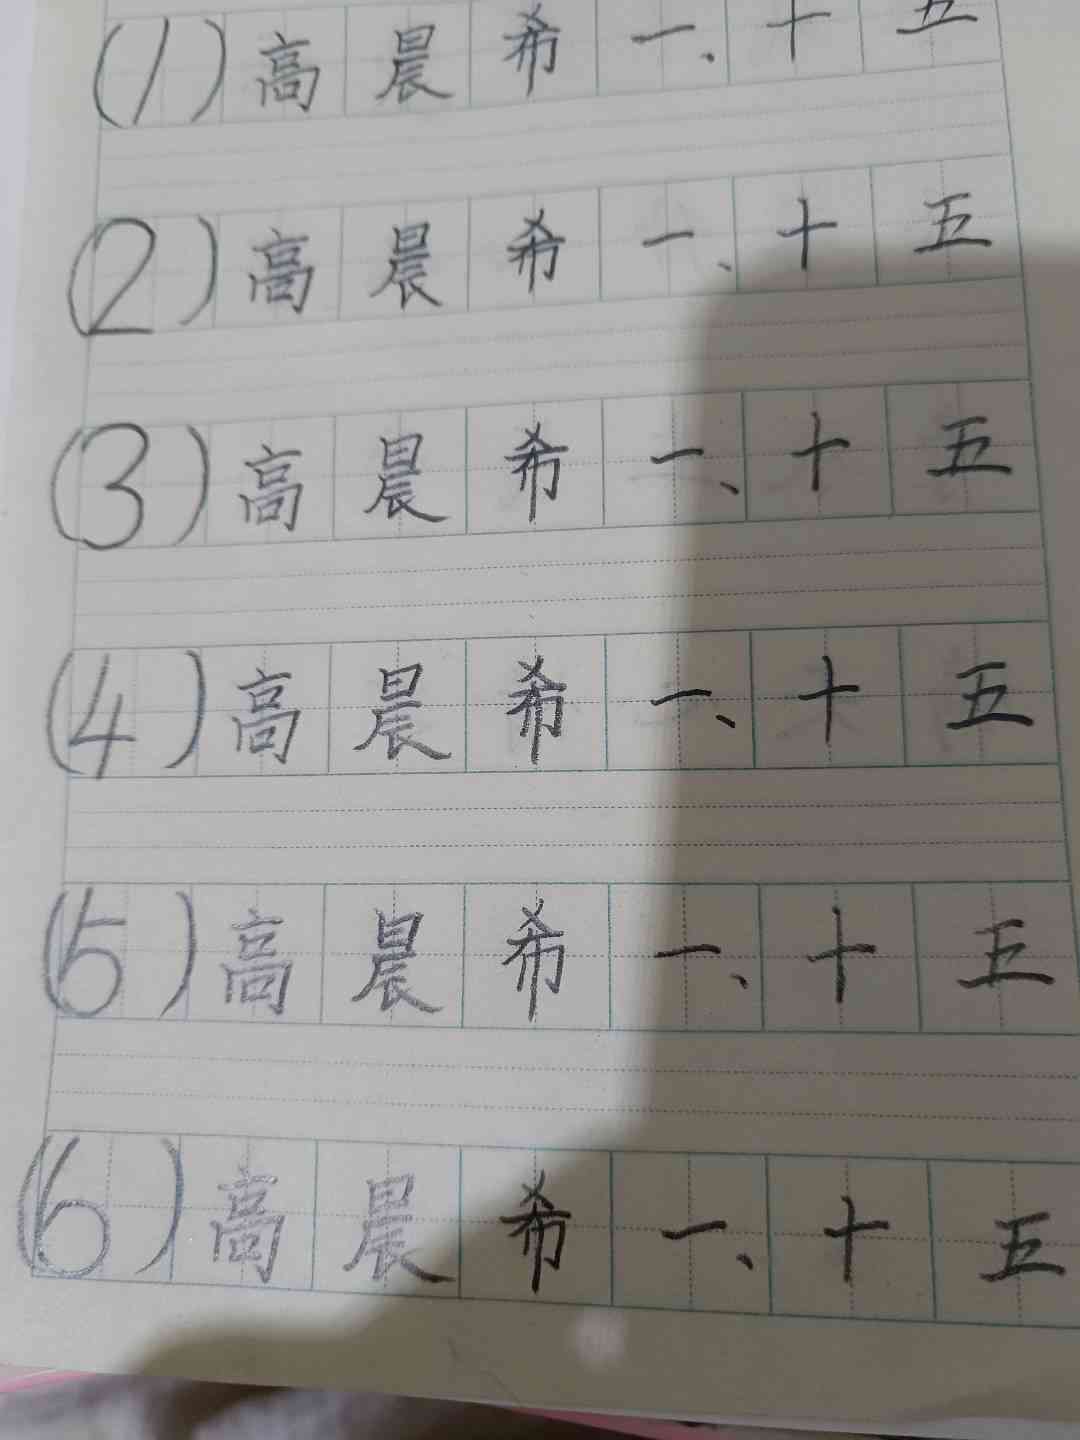 (1)高晨希一、十五
(2)高晨希一、十五
(3)高晨希一、十五
(4)高晨希一、十五
(5)高晨希一、十五
(6)高晨希一、十五